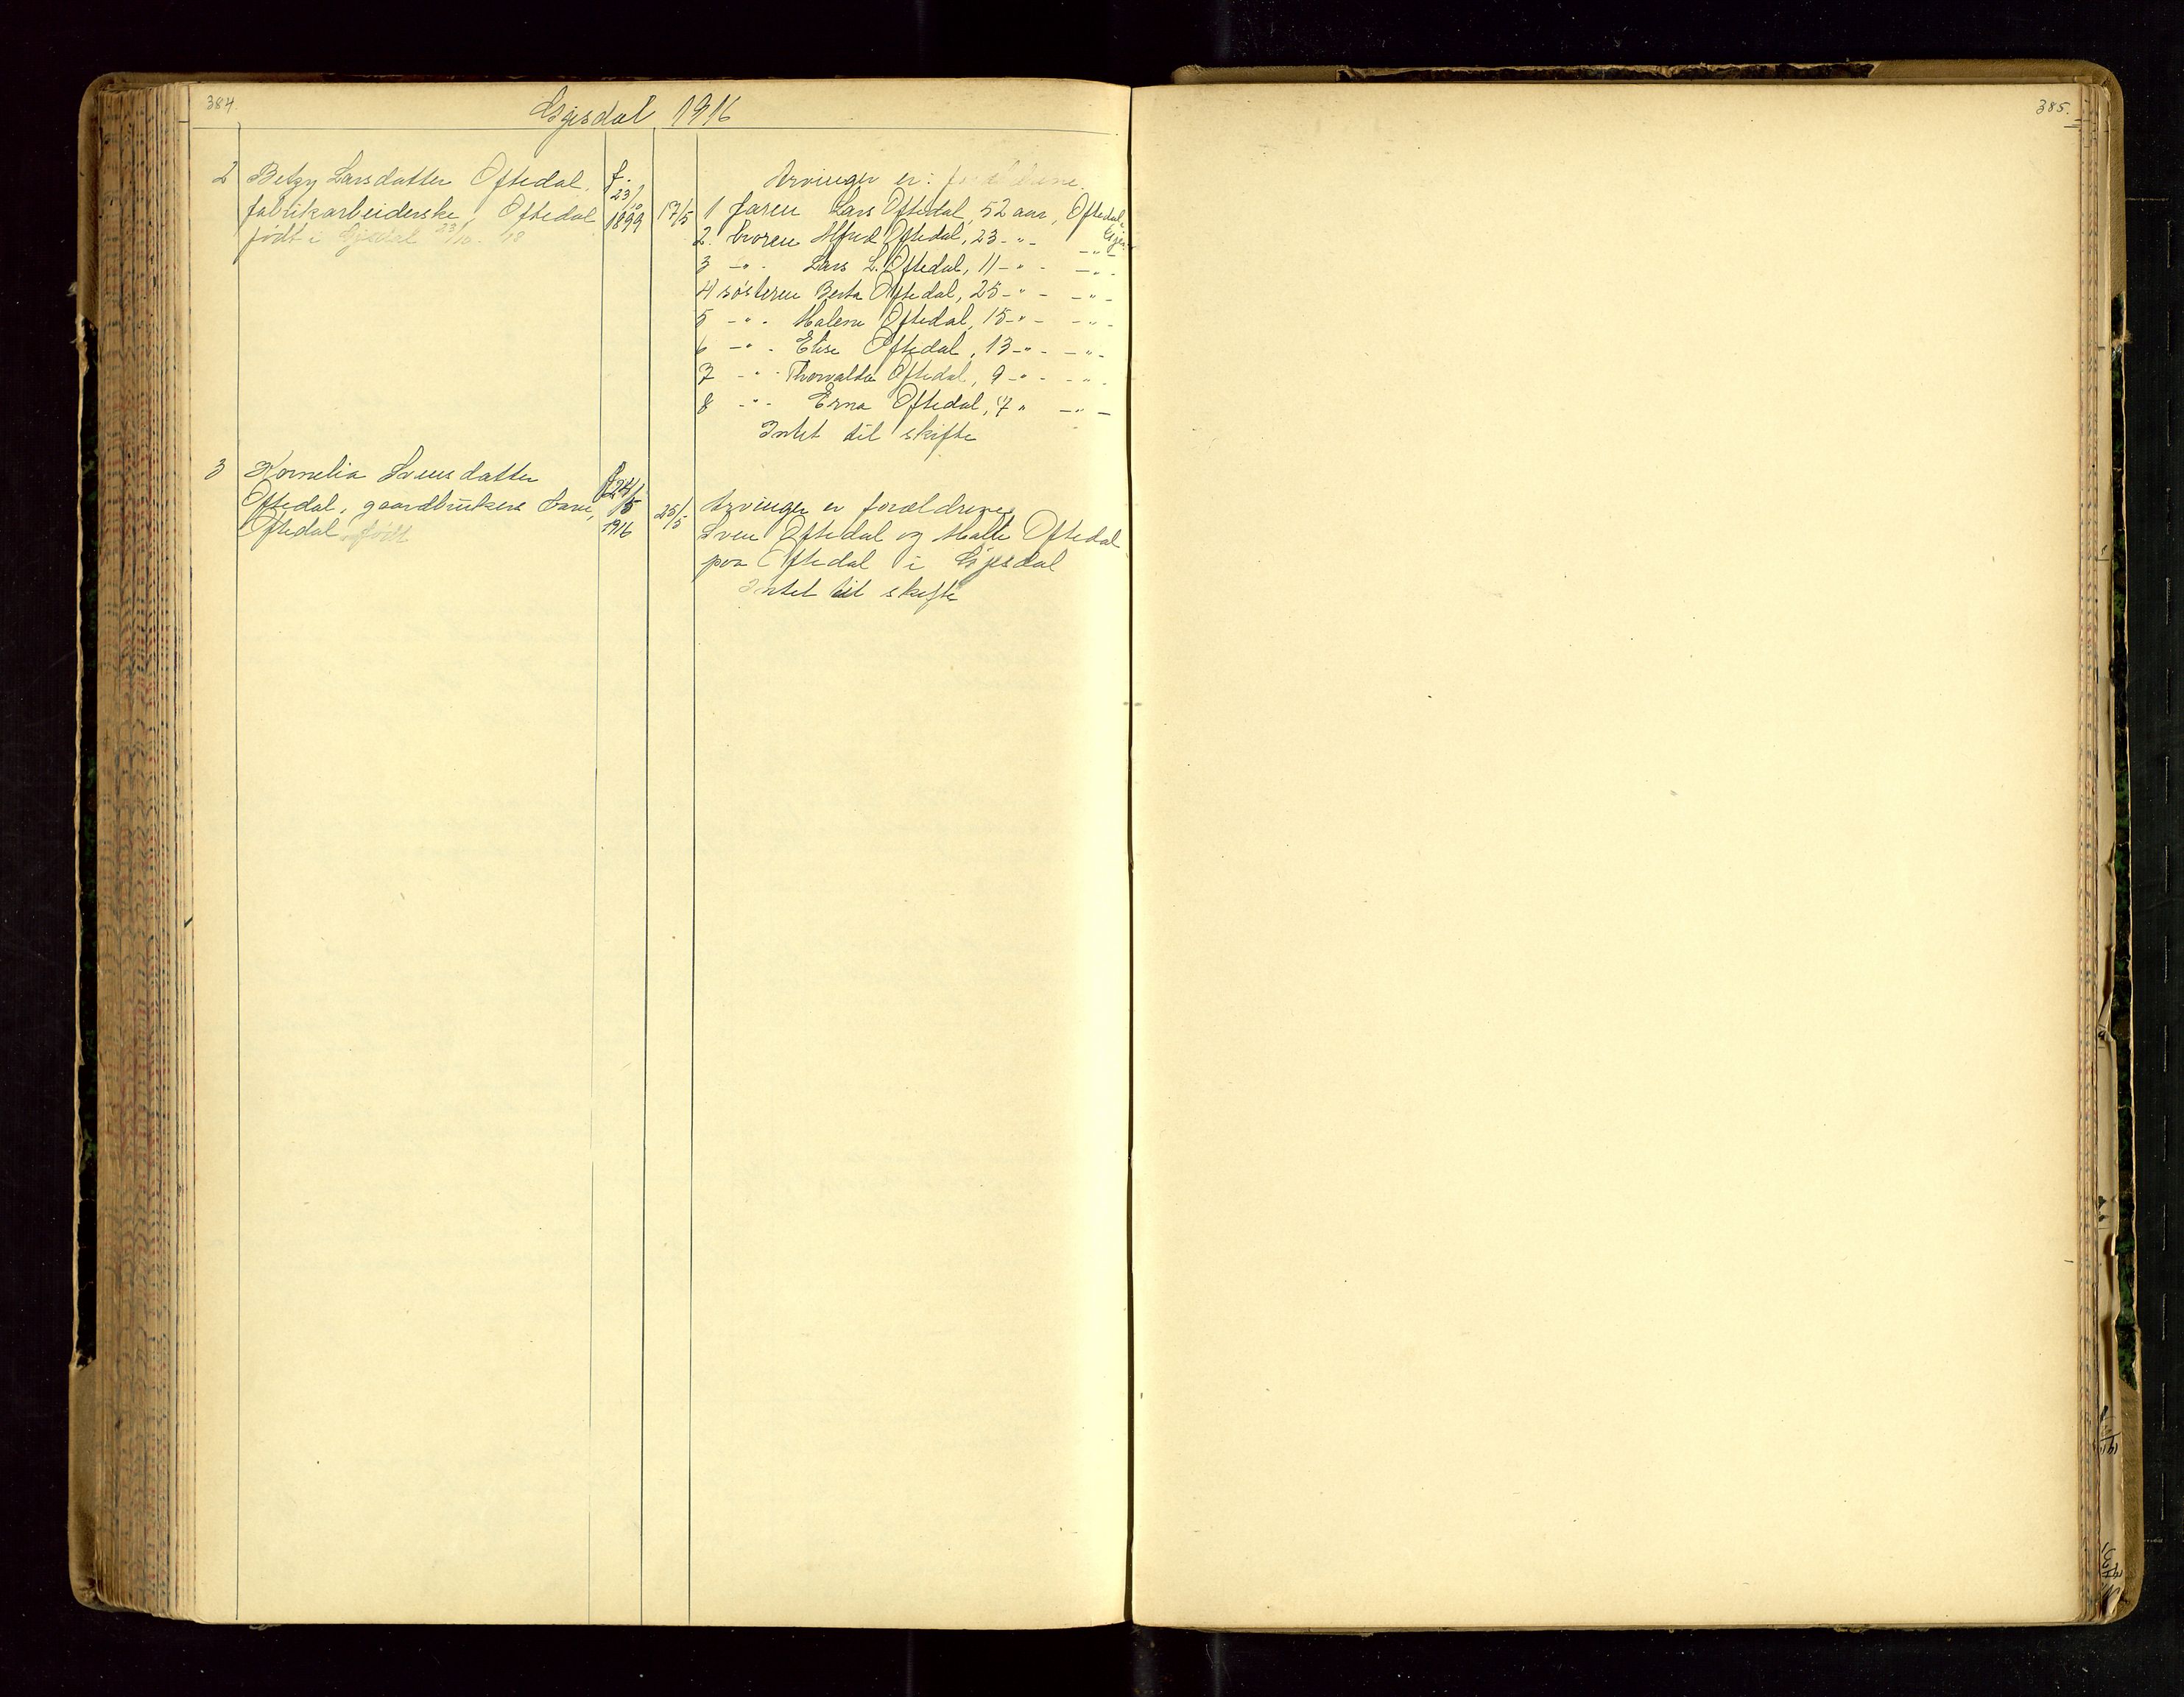 384.
Gjesdal 1916
2 Betzy Larsdatter Oftedal,
fabrikarbeiderske, Oftedal
født i Gjesdal 23/10-
f. 23/10 1899
17/5
Arvinger er: forældrene.
1 faren Lars Oftedal, 52 aar, Oftedal,
2. broren Alfred Oftedal, 23 -"- -"-
3 -"- Lars L. Oftedal, 11 -"- -"-
4 søsteren Berta Oftedal, 25 -"- -"-
5 -"- Malene Oftedal, 15 -"- -"-
6 -"- Elise Oftedal, 13 -"- -"-
7 -"- Thorvalda Oftedal, 9 -"- -"-
8 -"- Erna Oftedal, 7 " -"-
Intet til skifte
3 Kornelia Svensdatter
Oftedal, gaardbrukers barn,
Oftedal født
24/5 1916
25/5
Arvinger er forældrene
Sven Oftedal og Malle Oftedal
paa Oftedal i Gjesdal
Intet til skifte
385.